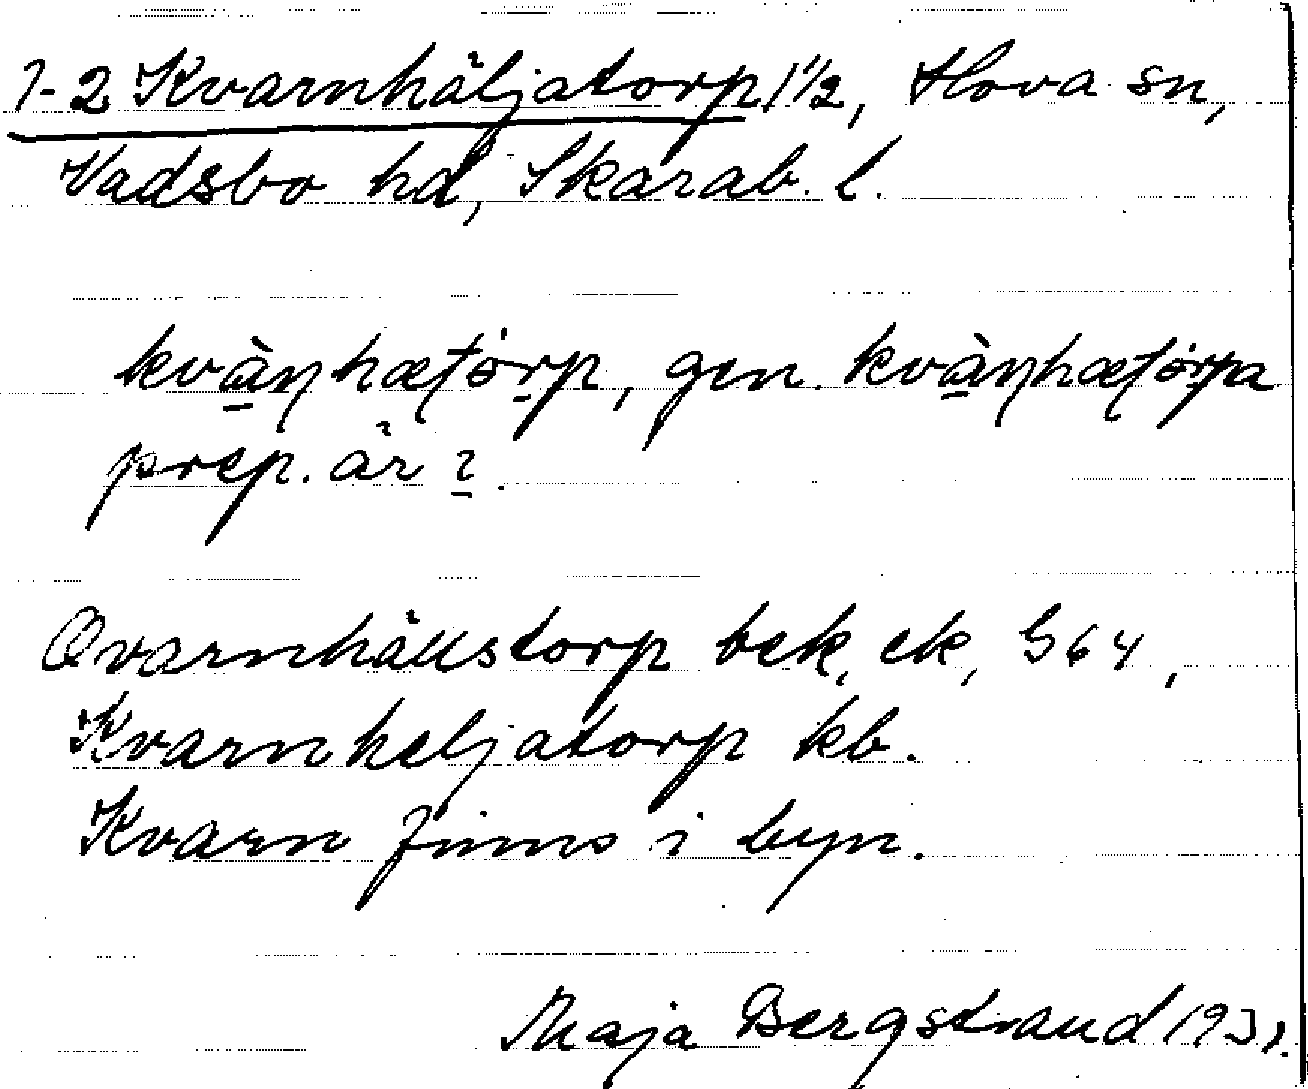 1-2 Kvarnhäljatorp 1 1/2, Hova sn,
Vadsbo hd, Skarab. l.
kvàṇhætórp, gen. kvàṇhætórpa
prep. är ı.
Qvarnhällstorp bek, ek, G64,
Kvarnheljatorp kb.
Kvarn finns i byn.
Maja Bergstrand 1931.